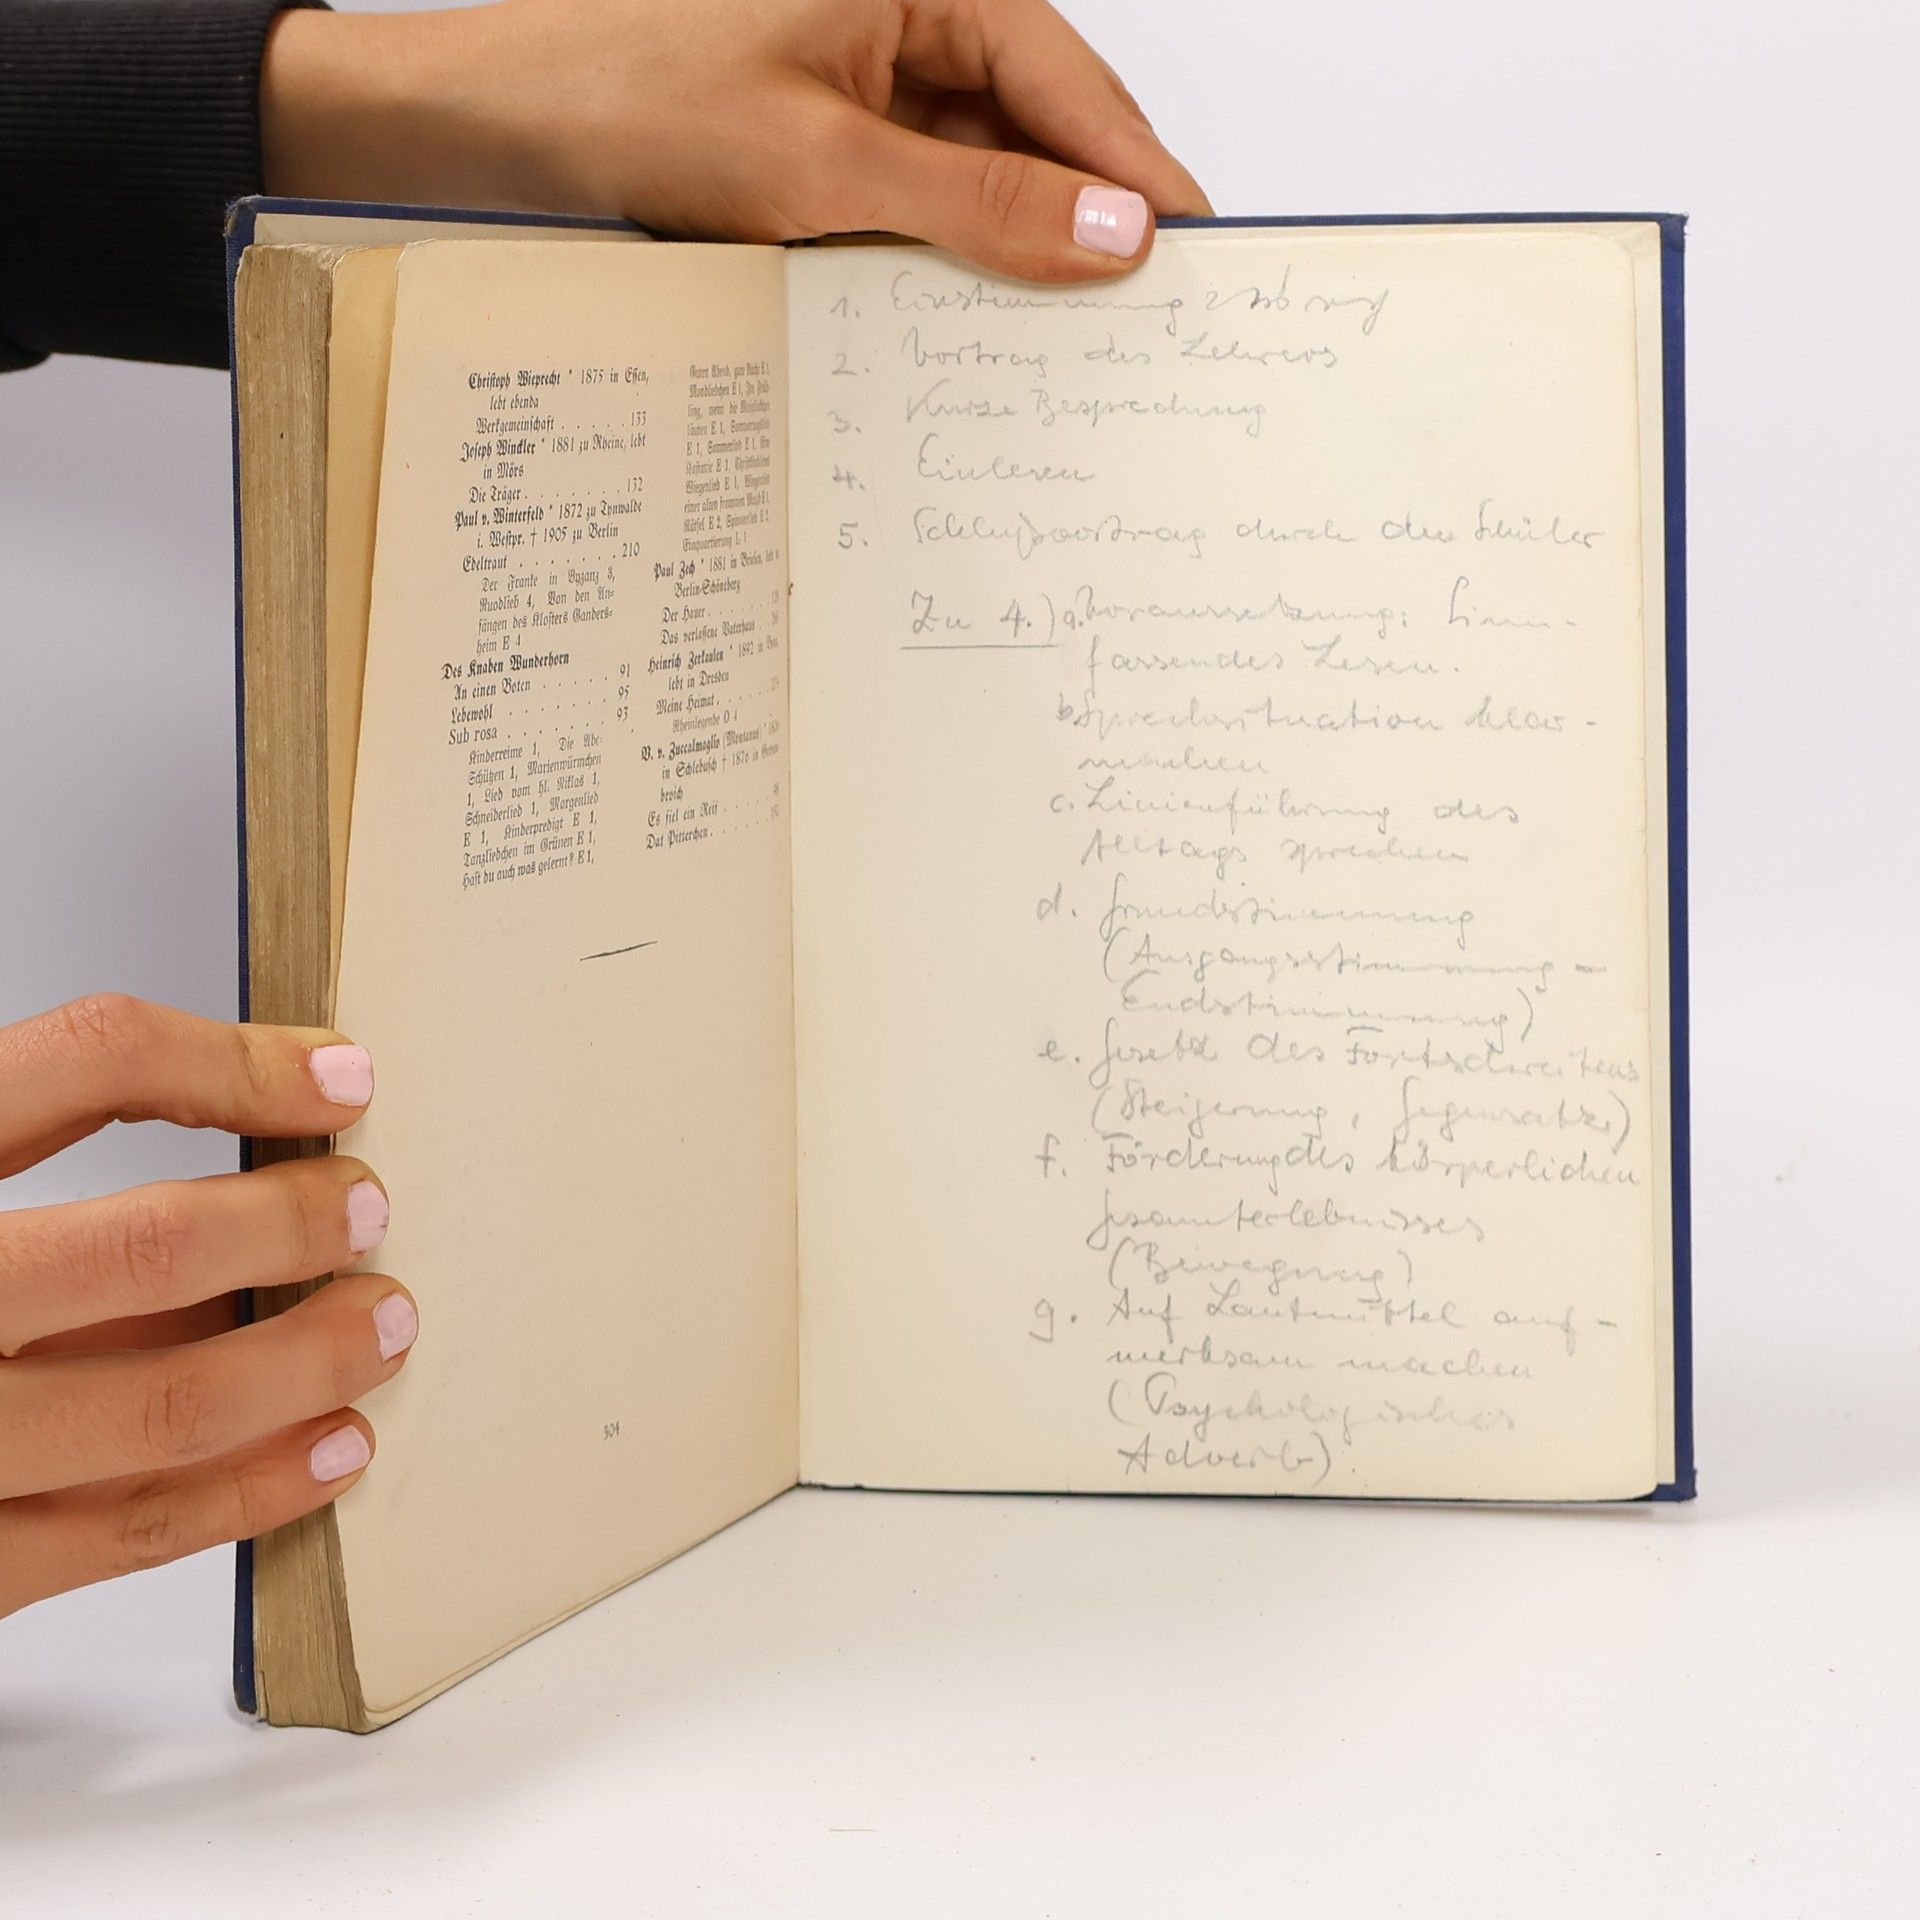 Christoph Wieprecht * 1875 in Essen,
lebt ebenda
Werkgemeinschaft . . . . . 133
Joseph Winckler * 1881 zu Rheine, lebt
in Mörs
Die Träger . . . . . . . 132
Paul v. Winterfeld * 1872 zu Tynwalde
i. Westpr. † 1905 zu Berlin
Edeltraut . . . . . . . 210
Der Franke in Byzanz 3,
Ruodlieb 4, Von den An-
fängen des Klosters Ganders-
heim E 4
Des Knaben Wunderhorn
An einen Boten . . . . . 91
Lebewohl . . . . . . . 95
Sub rosa . . . . . . . 93
Kinderreime 1, Die Abc-
Schützen 1, Marienwürmchen
1, Lied vom hl. Niklas 1,
Schneiderlied 1, Morgenlied
E 1, Kinderpredigt E 1,
Tanzliedchen im Grünen E 1,
Hast du auch was gelernt? E 1,
Guten Abend, gute Nacht E 1,
Mondliedchen E 1, Im Früh-
ling, wenn die Maiglöckchen
läuten E 1,
E 1, Sommerlied E 1,
Kastanie E 1,
Wiegenlied E 1,
einer alten frommen Magd E 1,
Rätsel E 2, Spinnerlied E 2,
Einquartierung L 1
Paul Zech * 1881 in Briesen, lebt in
Berlin-Schöneberg
Der Hauer . . . . . . .
Das verlassene Vaterhaus . .
Heinrich Zerkaulen * 1892 in Bonn,
lebt in Dresden
Meine Heimat . . . . . .
Rheinlegende O 4
V. v. Zuccalmaglio (Montanus) *
in Schlebusch † 1876 in
broich
Es fiel ein Reif . . . . .
Dat Pitterchen . . . . . .
304
1. Einstimmung
2. Vortrag des Lehrers
3. Kurze Besprechung
4. Einlesen
5. Schlußvortrag durch den Schüler
Zu 4.) a. Voraussetzung: Sinn-
fassendes Lesen.
b. Sprechsituation klar-
machen
c. Linienführung des
Alltags sprechen
d. Grundstimmung
(Ausgangsstimmung -
Endstimmung)
e. Gesetz des Fortschreitens
(Steigerung, Gegensatz)
f. Förderung des körperlichen
Gesamterlebnisses
(Bewegung)
g. Auf Lautmittel auf-
merksam machen
(Psychologisches
Adverb).